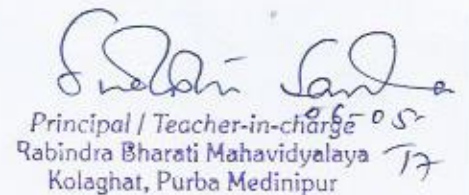 Principal / Teacher-in-charge
06-05-17
Rabindra Bharati Mahavidyalaya
Kolaghat, Purba Medinipur